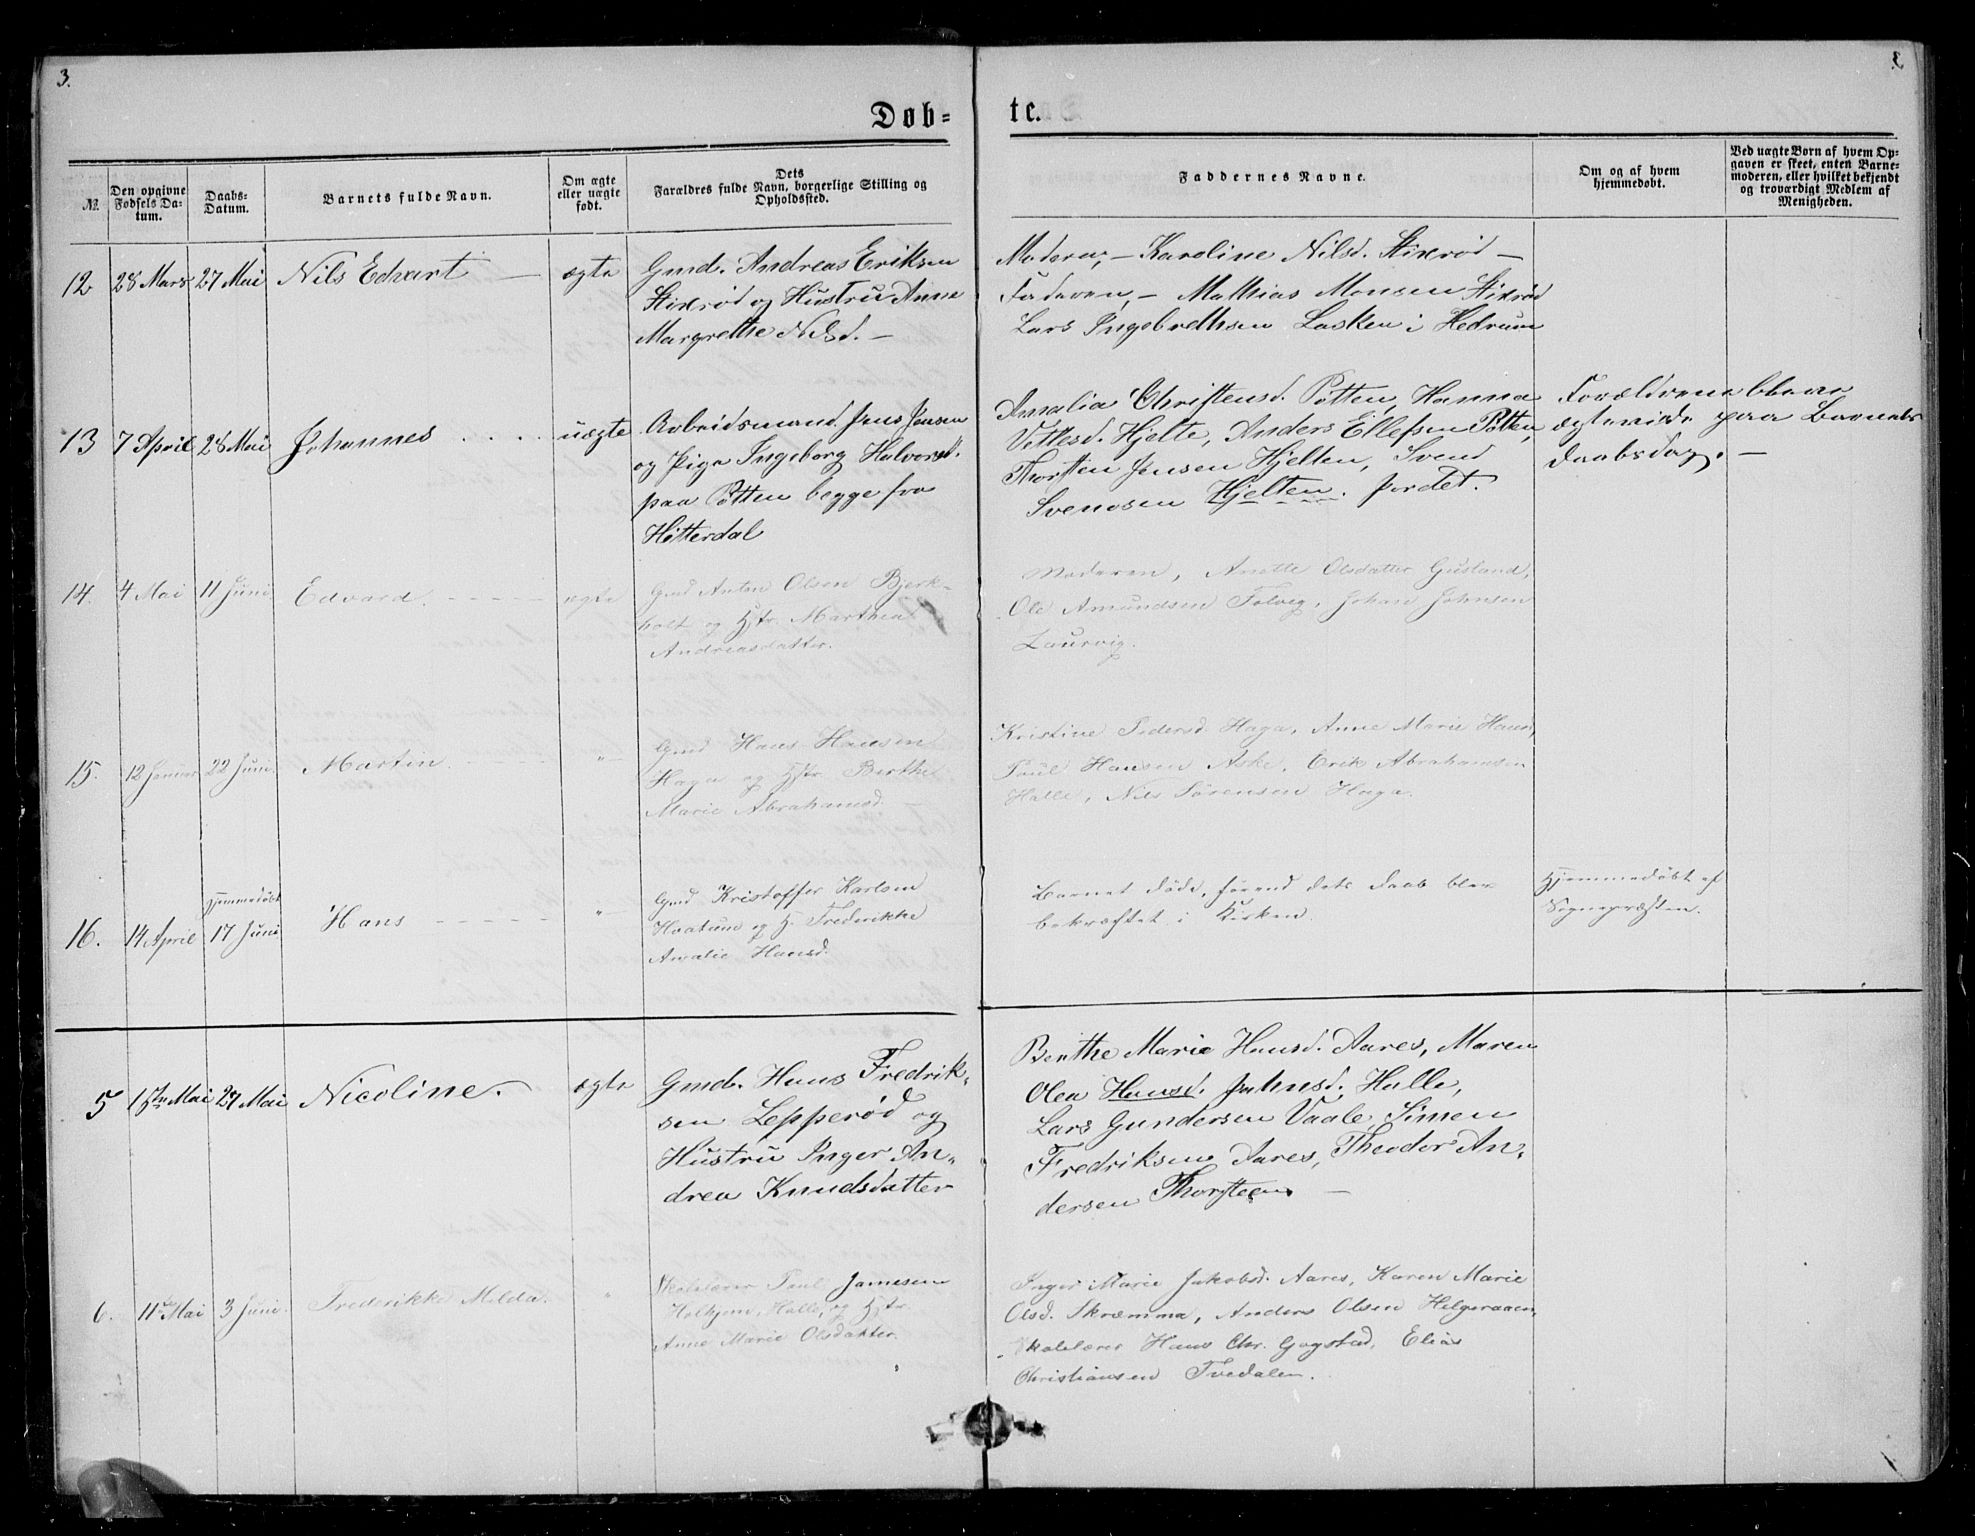 3.
Døb=
te.
№.
Den opgivne Fødsels Da-
tum.
Daabs-
Datum.
Barnets fulde Navn.
Om ægte
eller uægte
født.
Dets
Forældres fulde Navn, borgerlige Stilling og
Opholdssted.
Faddernes Navne.
Om og af hvem
hjemmedøbt.
Ved uægte Børn af hvem Op-
gaven er skeet, enten Barne-
moderen, eller hvilket bekjendt
og troværdigt Medlem af
Menigheden.
12 28 Mars 27 Mai Nils Edvart — ægte Gmd. Andreas Eriksen
Stixrød og Hustru Anne
Margrethe Nilsd. —
Moderen, — Karoline Nilsd. Stixrød —
Faderen, — Mathias Monsen Stixrød
Lars Ingebrethsen Lasken i Hedrum
13 7 April 28 Mai Johannes . . . . uægte Arbeidsmand Jens Jensen
og Pige Ingeborg Halvorsd.
paa Pøtten begge fra
Hitterdal
Amalia Christensd. Pøtten, Hanna
Vetlesd. Hjelte, Anders Ellefsen Pøtten,
Thorsten Jensen Hjelten, Svend
Svendsen Hjelten.
Forældrene bleve
ægteviede paa Barnets
Daabsdag. —
14. 4 Mai 11 Juni Edvard. - - - - - ægte Gmd Anton Olsen Bjerk-
holt og Hstr. Marthea
Andreasdatter.
Moderen, Anette Olsdatter Gusland,
Ole Amundsen Tolvig, Johan Johnsen
Laurvig.
15. 12 Januar 22 Juni Martin. - - - - „ Gmd Hans Hansen
Haga og Hstr. Berthe
Marie Abrahamsd. —
Kristine Pedersd Haga, Anne Marie Hansd,
Paul Hansen Aske, Erik Abrahamsen
Halle, Nils Sørensen Haga.
16. 14 April Hjemmedøbt
17 Juni Hans - - - - - „ Gmd Kristoffer Karlsen
Hvatum og H. Frederikke
Amalie Hansd.
Barnet døde, førend dets Daab blev
bekræftet i Kirken.
Hjemmedøbt af
Sognepræsten.
5 1ste Mai 27 Mai Nicoline. ægte Gmd. Hans Fredrik-
sen Lepperød og
Hustru Inger An-
drea Knudsdatter
Berthe Marie Hansd. Aares, Maren
Olea Hansd. Jahnsd. Halle,
Lars Gundersen Vaale, Simen
Fredriksen Aares, Theodor An-
dersen Thorsteen —
6. 11te Mai 3 Juni. Frederikke Milda. „ Skolelærer Paul Jamesen
Holkjem, Halle, og Hstr.
Anne Marie Olsdatter.
Inger Marie Jakobsd. Aares, Karen Marie
Olsd. Skræmma, Anders Olsen Helgeraaen,
Skolelærer Hans Chr. Gogstad, Elias
Christiansen Tvedalen.